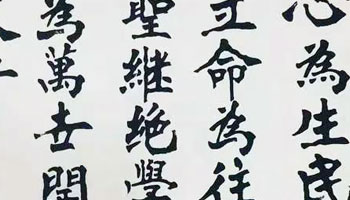 心為生民
立命為往
聖継绝學
為萬世開